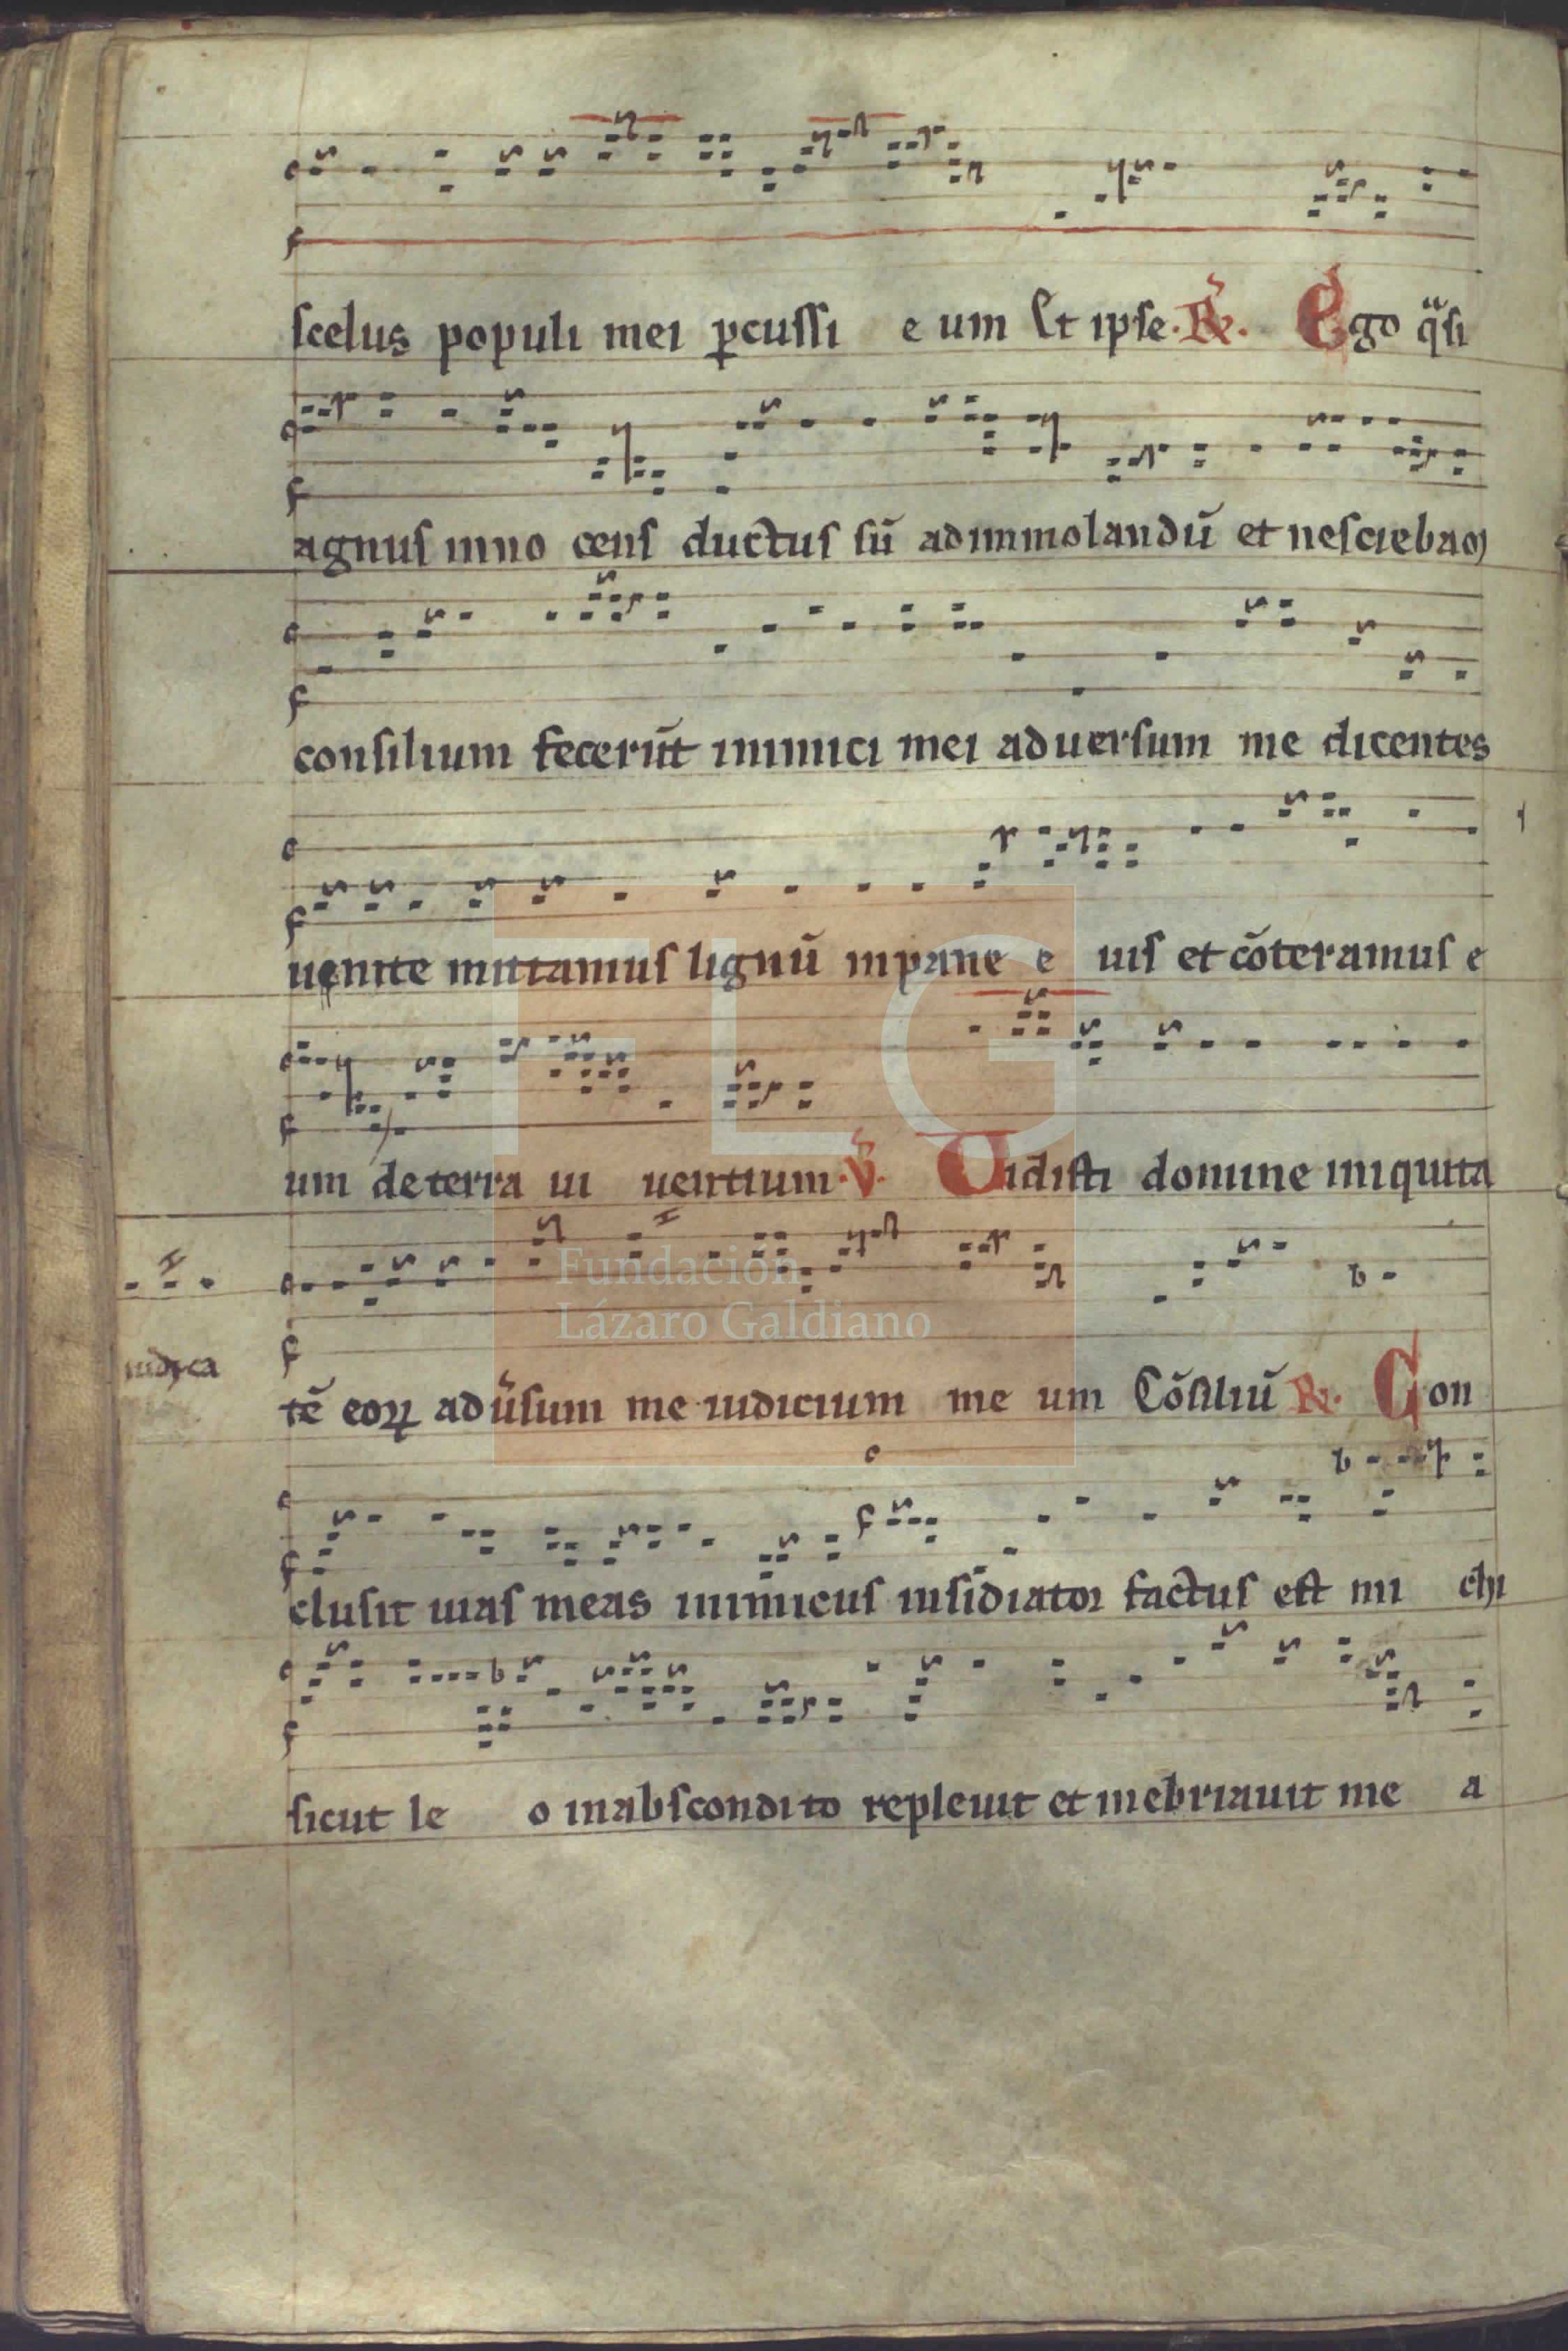 scelus populi mei ꝑcussi e um Et ipse ℟. Ego qᷓsi
agnus inno cens ductus sū ad immolandū et nesciebam
consilium fecerūt inimici mei aduersum me dicentes
uenite mittamus lignū in pane e ius et cōteramus e
um de terra ui uentium. ℣. Uidisti domine iniquita
iudica
tē eoꝝ adu͛sum me iudicium me um Cōsiliū ℟. Con
clusit uias meas inimicus insidiator factus est mi chi
sicut le o in abscondito repleuit et inebriauit me a
FLG
Fundación
Lázaro Galdiano